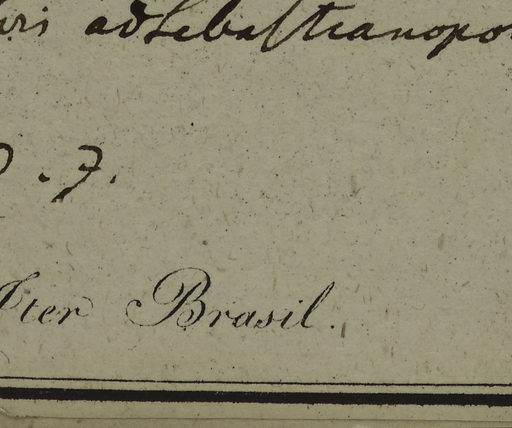 ad Sebastianopo
. 7.
Iter Brasil.